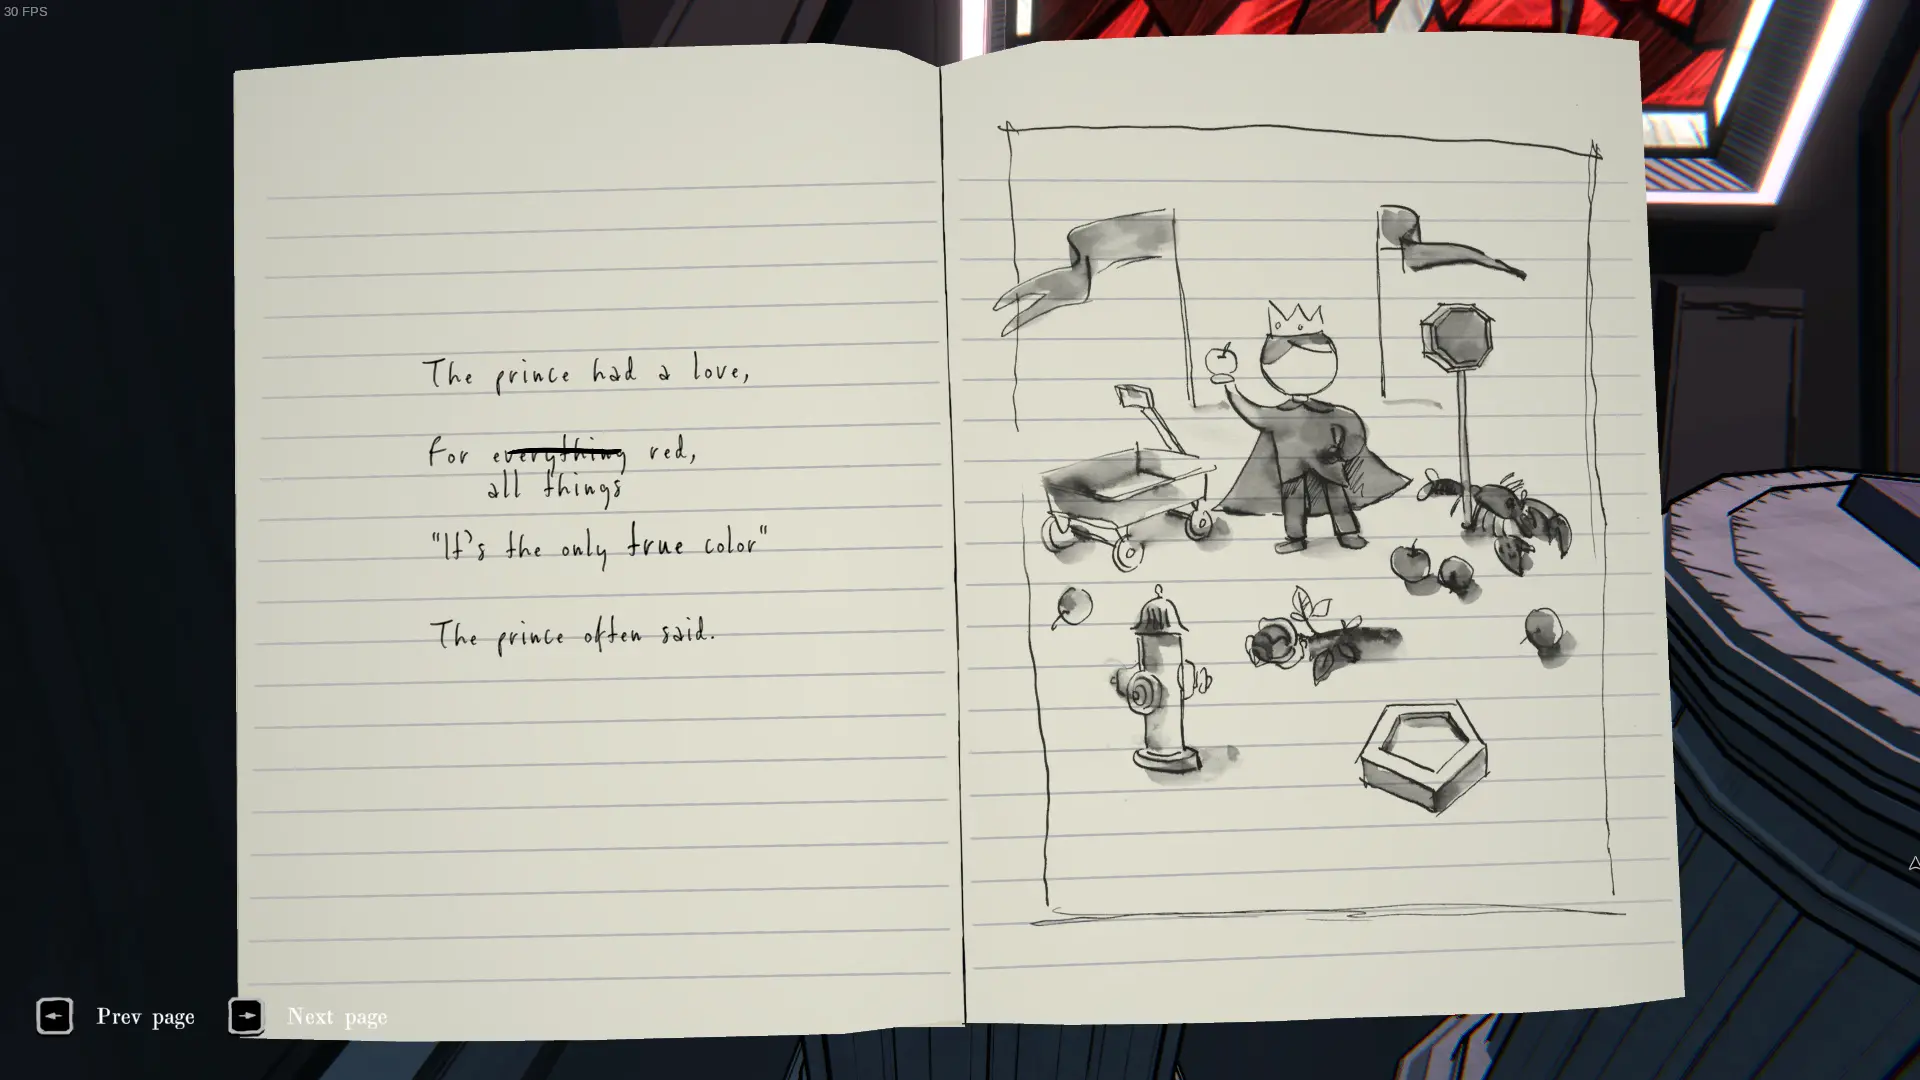 30 FPS
The prince had a love,
For everything red,
all things
"It's the only true color"
The prince often said.
Prev page
Next page